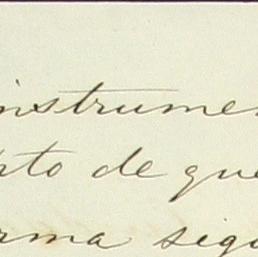 instrumen
rto de que
rma sigu